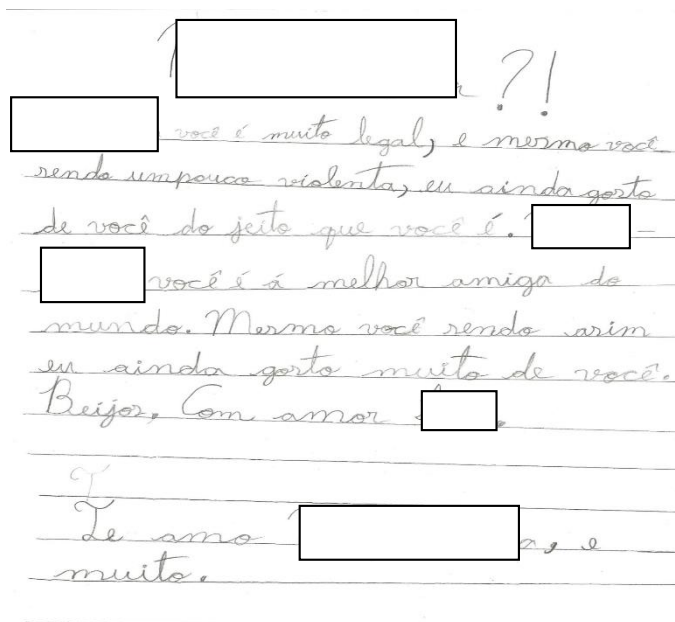 ?!
você é muito legal, e mesmo você
sendo umpouco violenta, eu ainda gosto
de você do jeito que você é.
você é á melhor amiga do
mundo. Mesmo você sendo asim
eu ainda gosto muito de você.
Beijos, Com amor
T
Te amo a, e
muito.